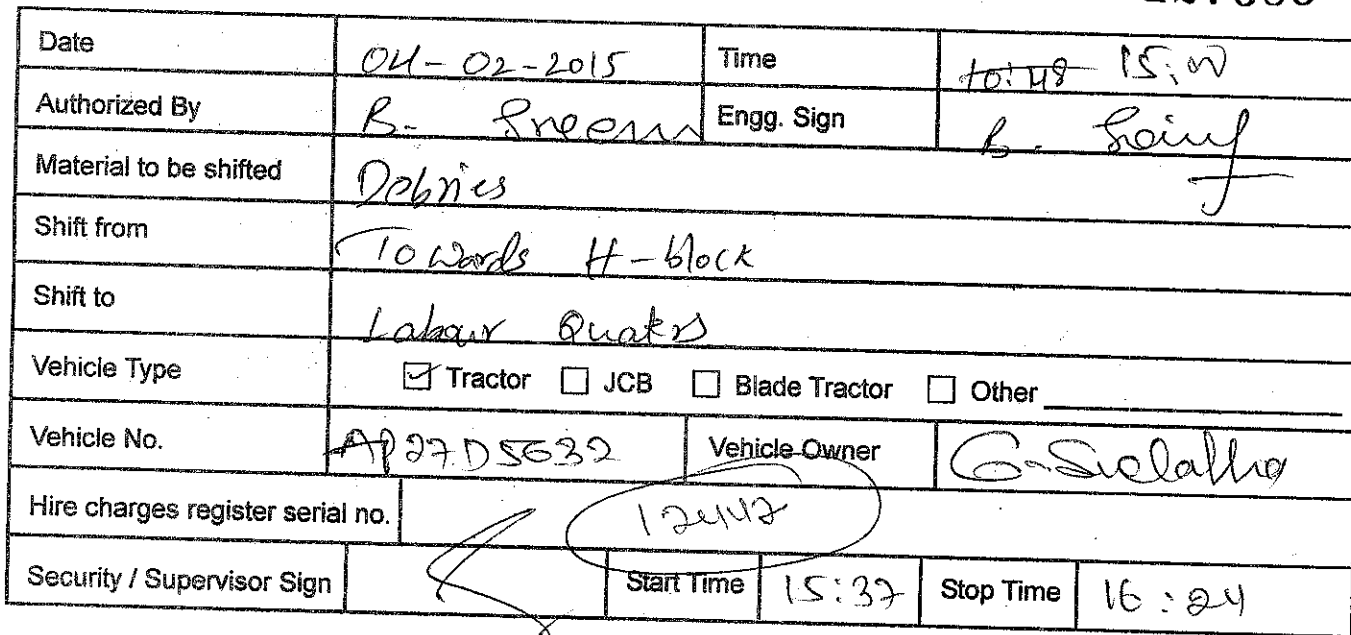 Date 04-02-2015 Time 10:48 15:00
Authorized By B. Engg. Sign B.
Material to be shifted Debries
Shift from Towards H-block
Shift to Labour Quaters
Vehicle Type Tractor JCB Blade Tractor Other
Vehicle No. AP27D5632 Vehicle Owner
Hire charges register serial no. 12447
Security / Supervisor Sign Start Time 15:37 Stop Time 16:24